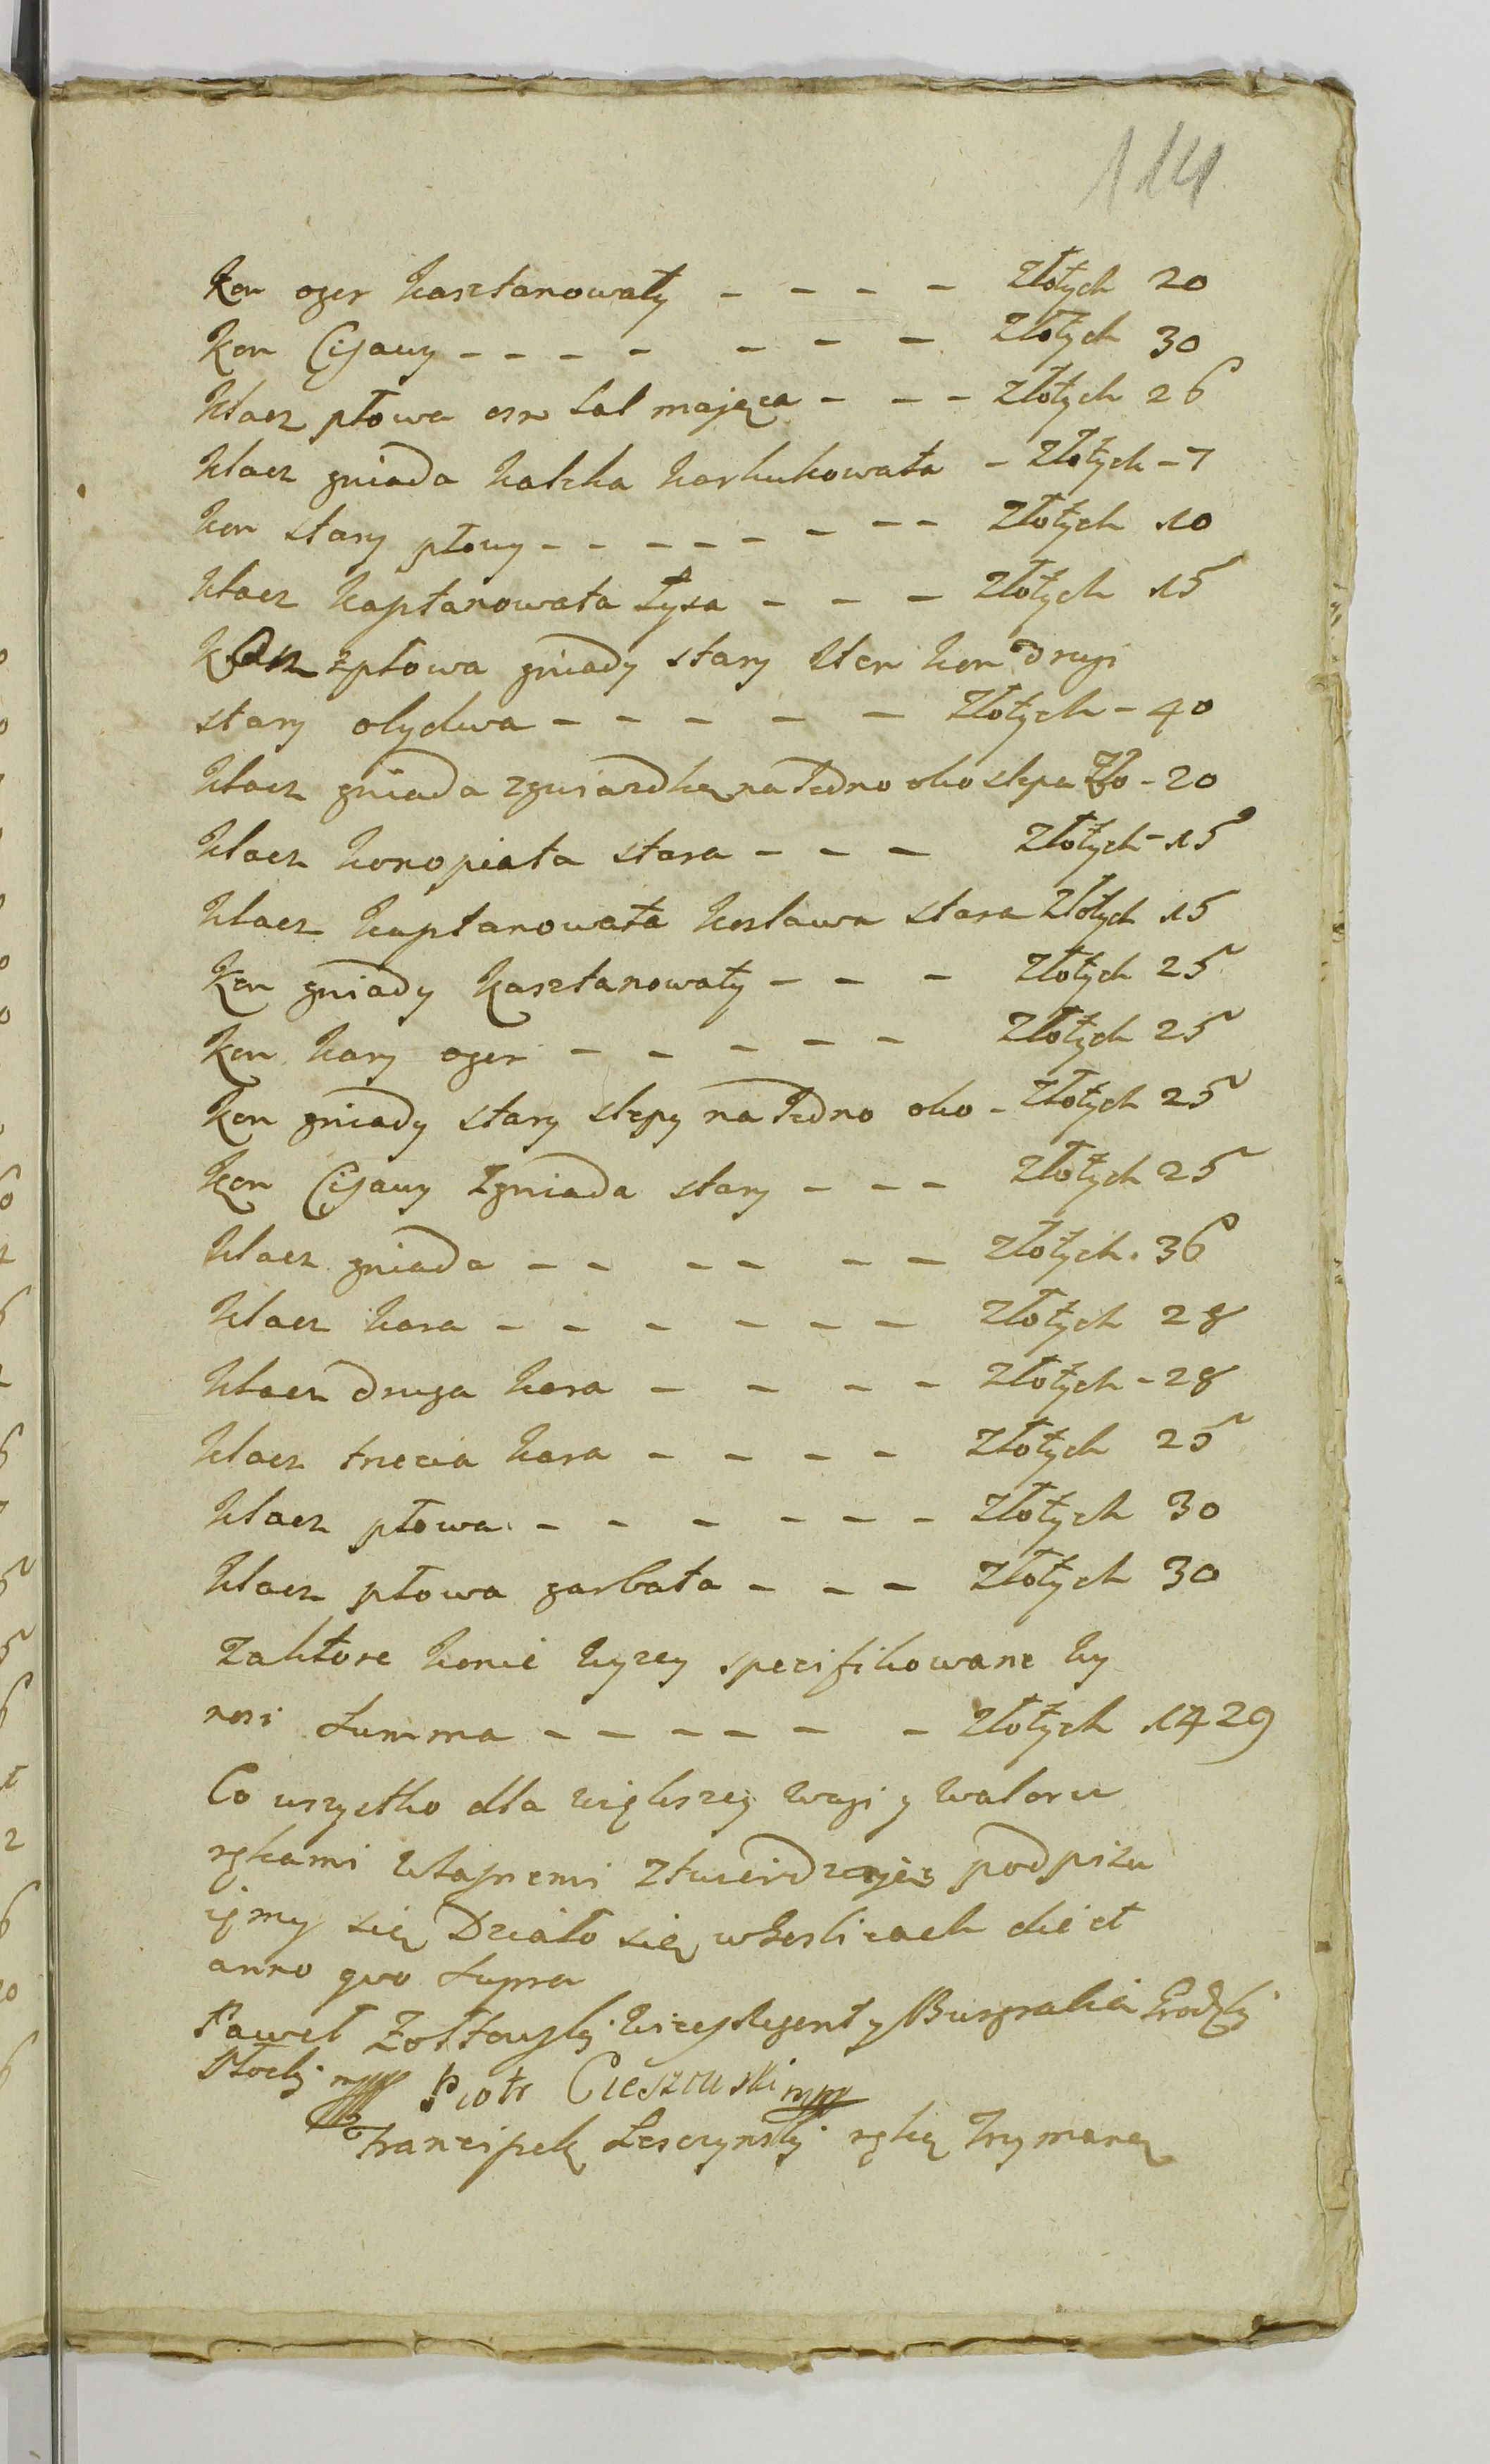 114
Kon oger kasztanowaty - - - - Złotych 20
Kon Cisawy - - - - - - - Złotych 30
Klacz płowa osm lat maiąca - - - Złotych 26
Klacz gniada kalika - Złotych - 7
kon stary płowy - - - - - - - - Złotych 10
klacz kaptanowata łysa - - - Złotych 15
zpłowa gniady stary kon drugi
stary obydwa - - - - - Złotych - 40
klacz gniada zgwiazdką na Jedno oko slepa Zło - 20
klacz konopiata stara - - - Złotych - 15
klacz kaptanowata koslawa stara Złotych 15
Kon gniady kasztanowaty - - - Złotych 25
Kon kary oger - - - - - Złotych 25
Kon gniady stary slepy na Jedno oko - Złotych 25
Kon Cisawy Zgniada stary - - - Złotych 25
klacz gniada - - - - - - Złotych. 36
klacz kara - - - - - - Złotych 28
klacz druga kara - - - - Złotych - 28
klacz trzecia kara - - - - Złotych 25
klacz płowa - - - - - - Złotych 30
klacz płowa garbata - - - Złotych 30
Zaktore konie wyzey specifikowane wy
nosi summa - - - - - - Złotych 1429
Co wszystko dla większey wagi y waloru
rękami własnemi ztwierdzaiąc podpisu
iemy się Działo się die et
anno quo supra
Paweł Zołtowski Viceregent y Burgrabia Grodzki
Płocki mpp Piotr Cieszewski mpp
Franciszek Lesczynski ręką trzymaną